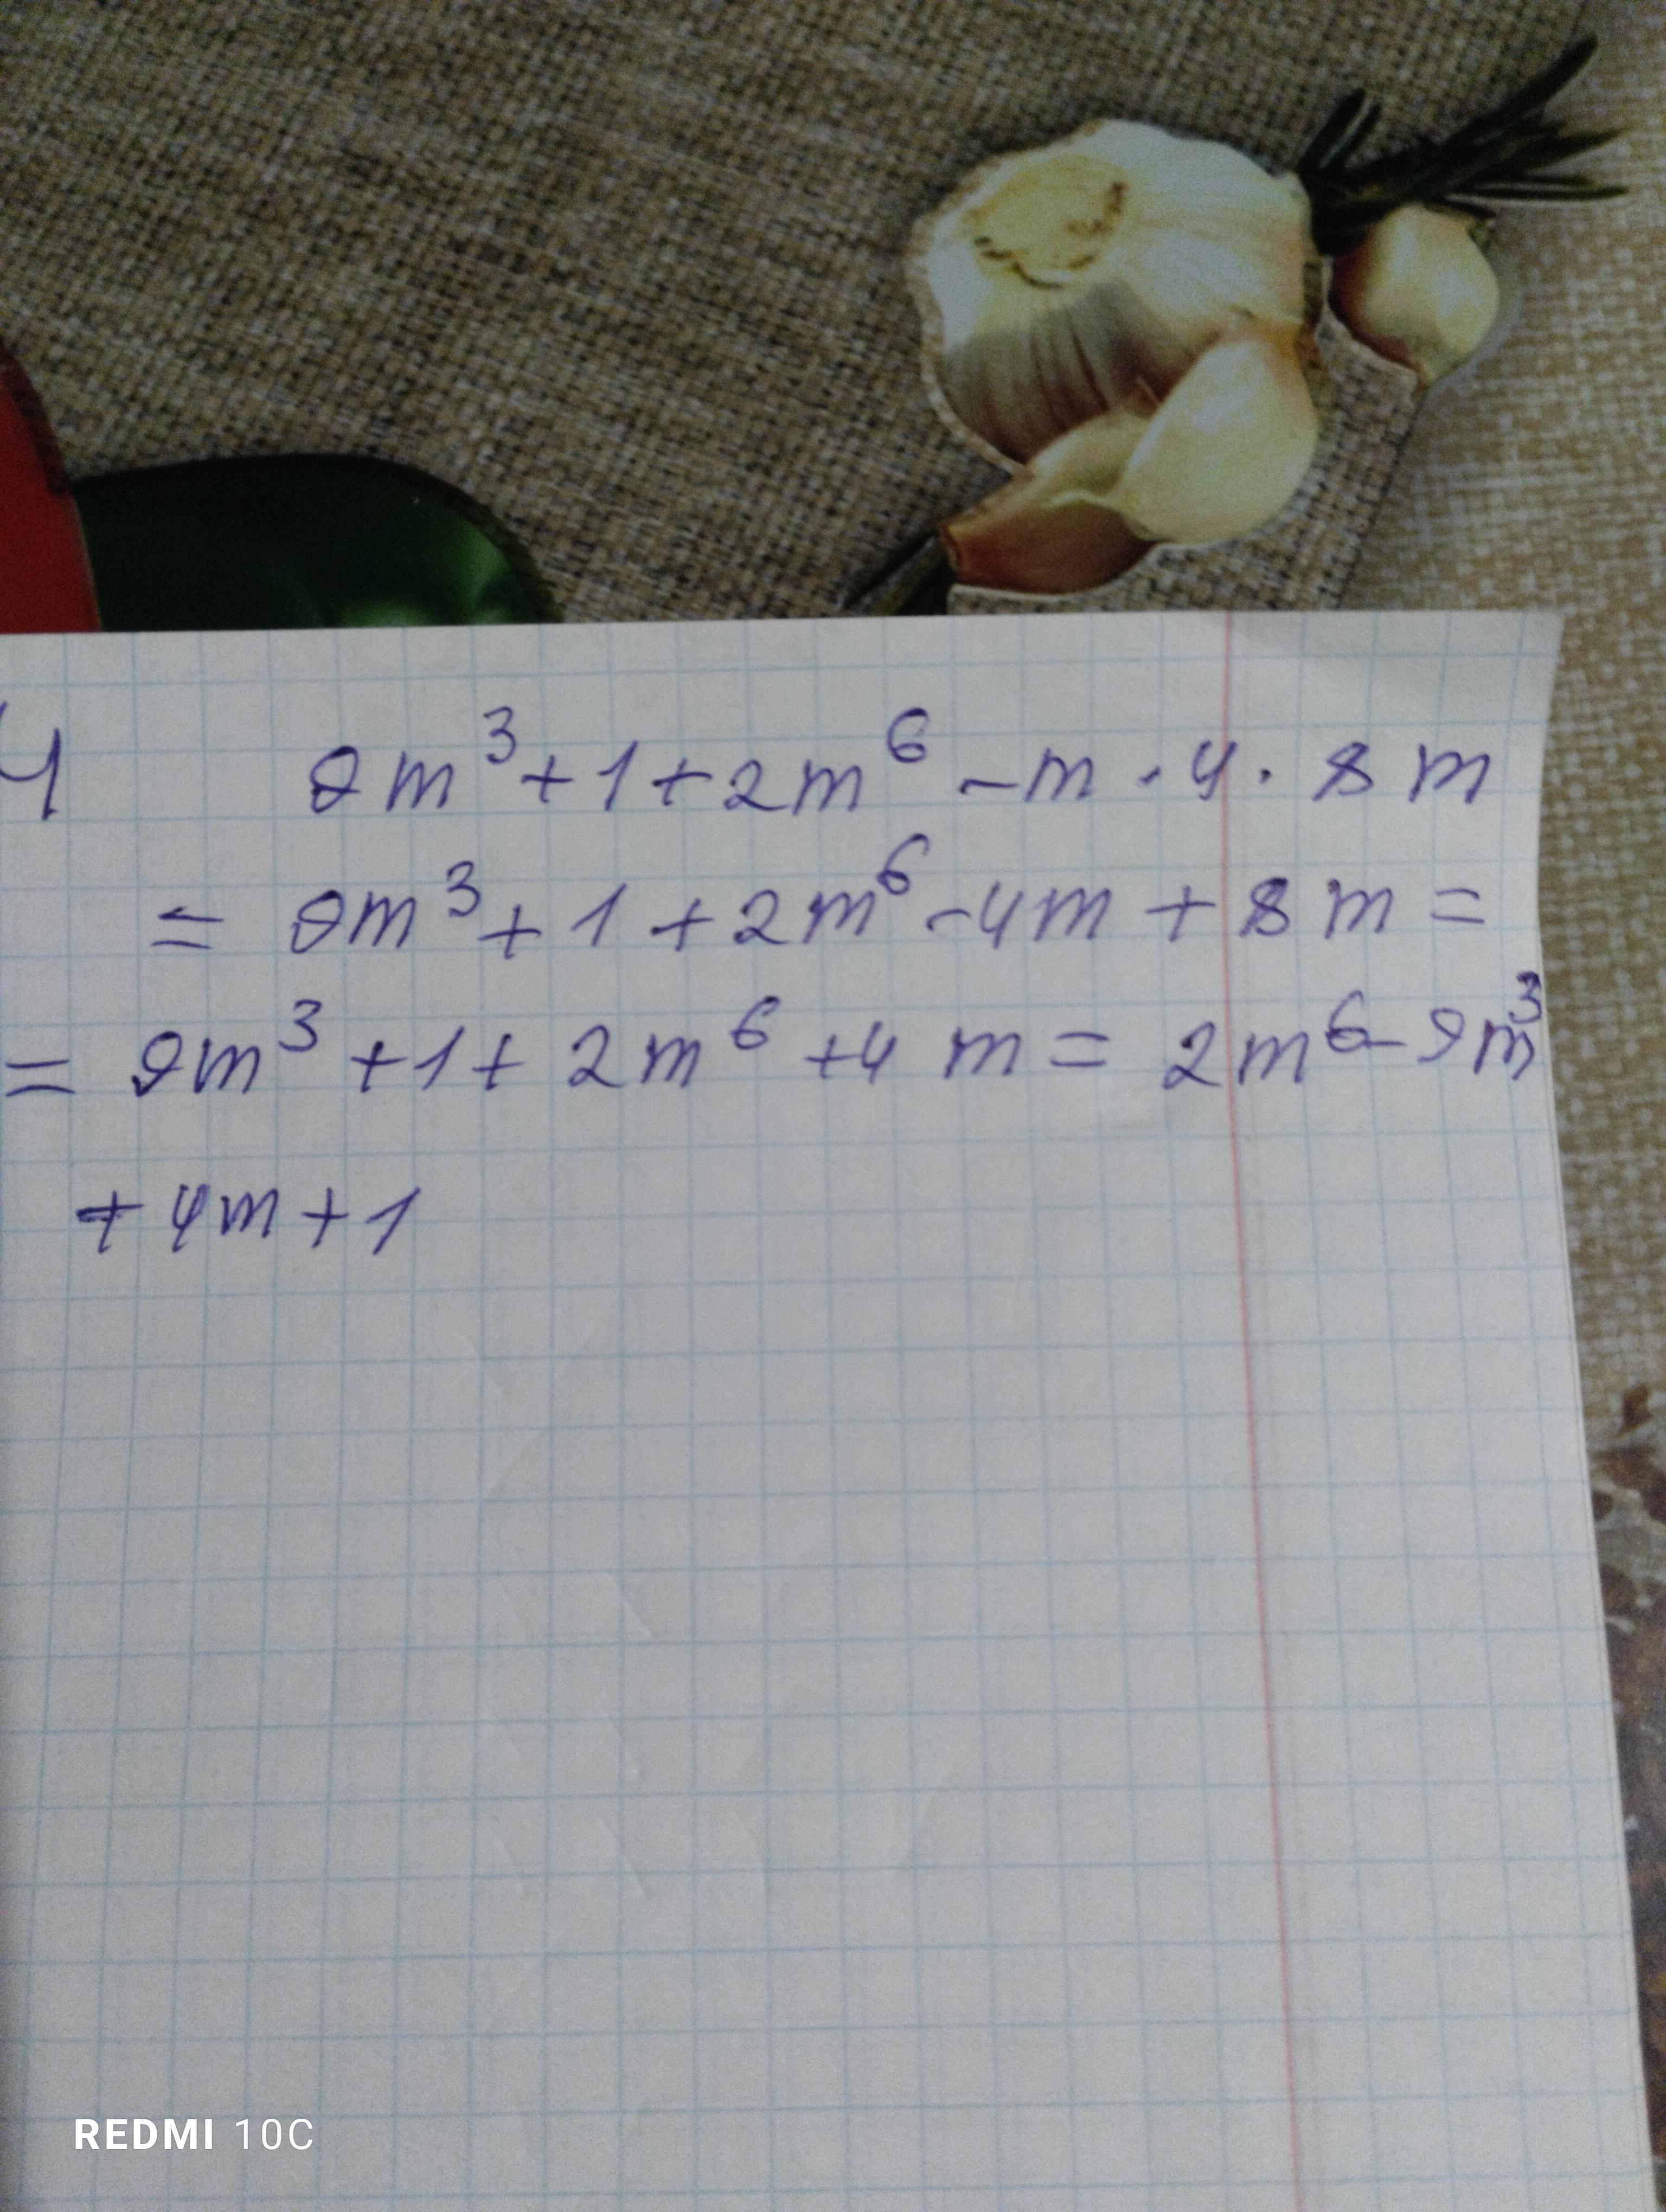 4 9m³+1+2m⁶-m·4·8m
= 9m³+1+2m⁶-4m+8m=
= 9m³+1+2m⁶+4m=2m⁶-9m³
+4m+1
REDMI 10C